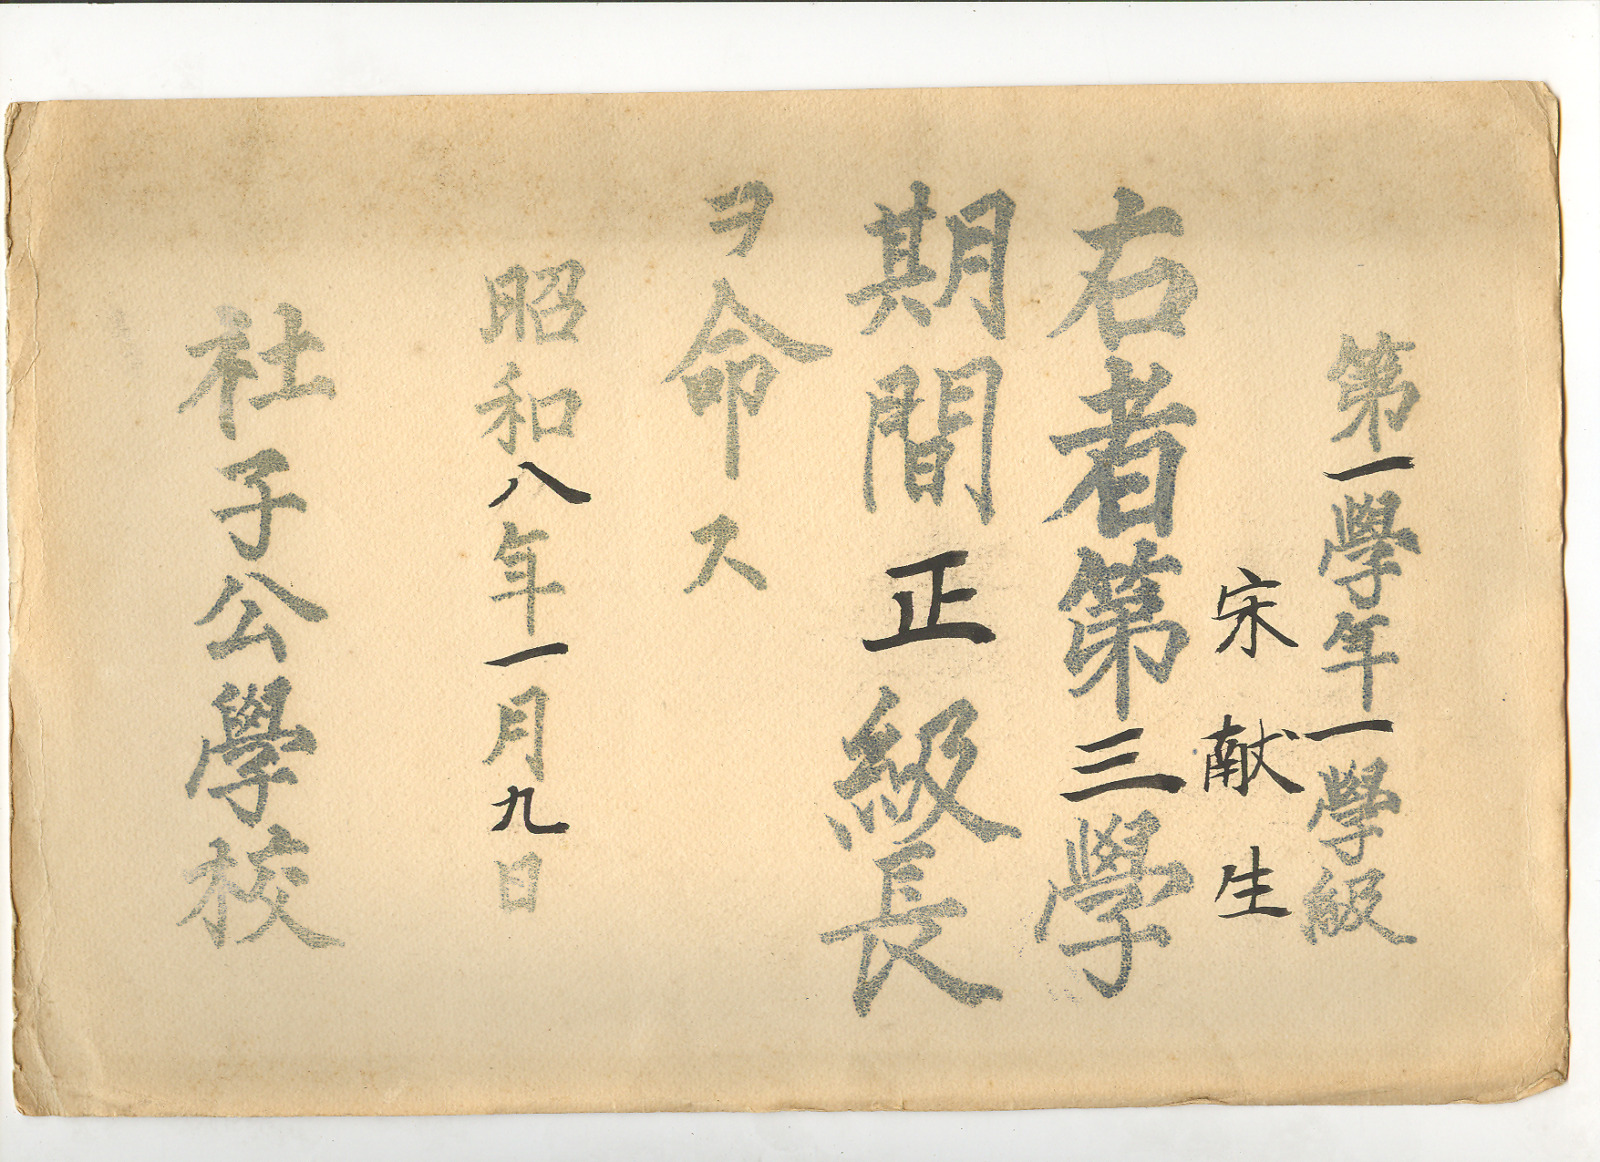 第一學年一學級
宋献生
右者第三學
期間正級長
ヲ命ス
昭和八年一月九日
社子公學校